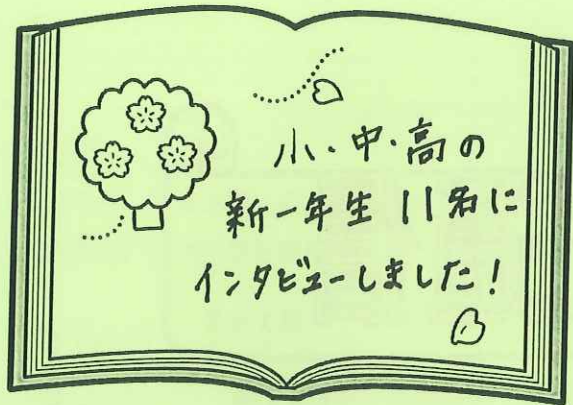 小・中・高の
新一年生 11名に
インタビューしました!